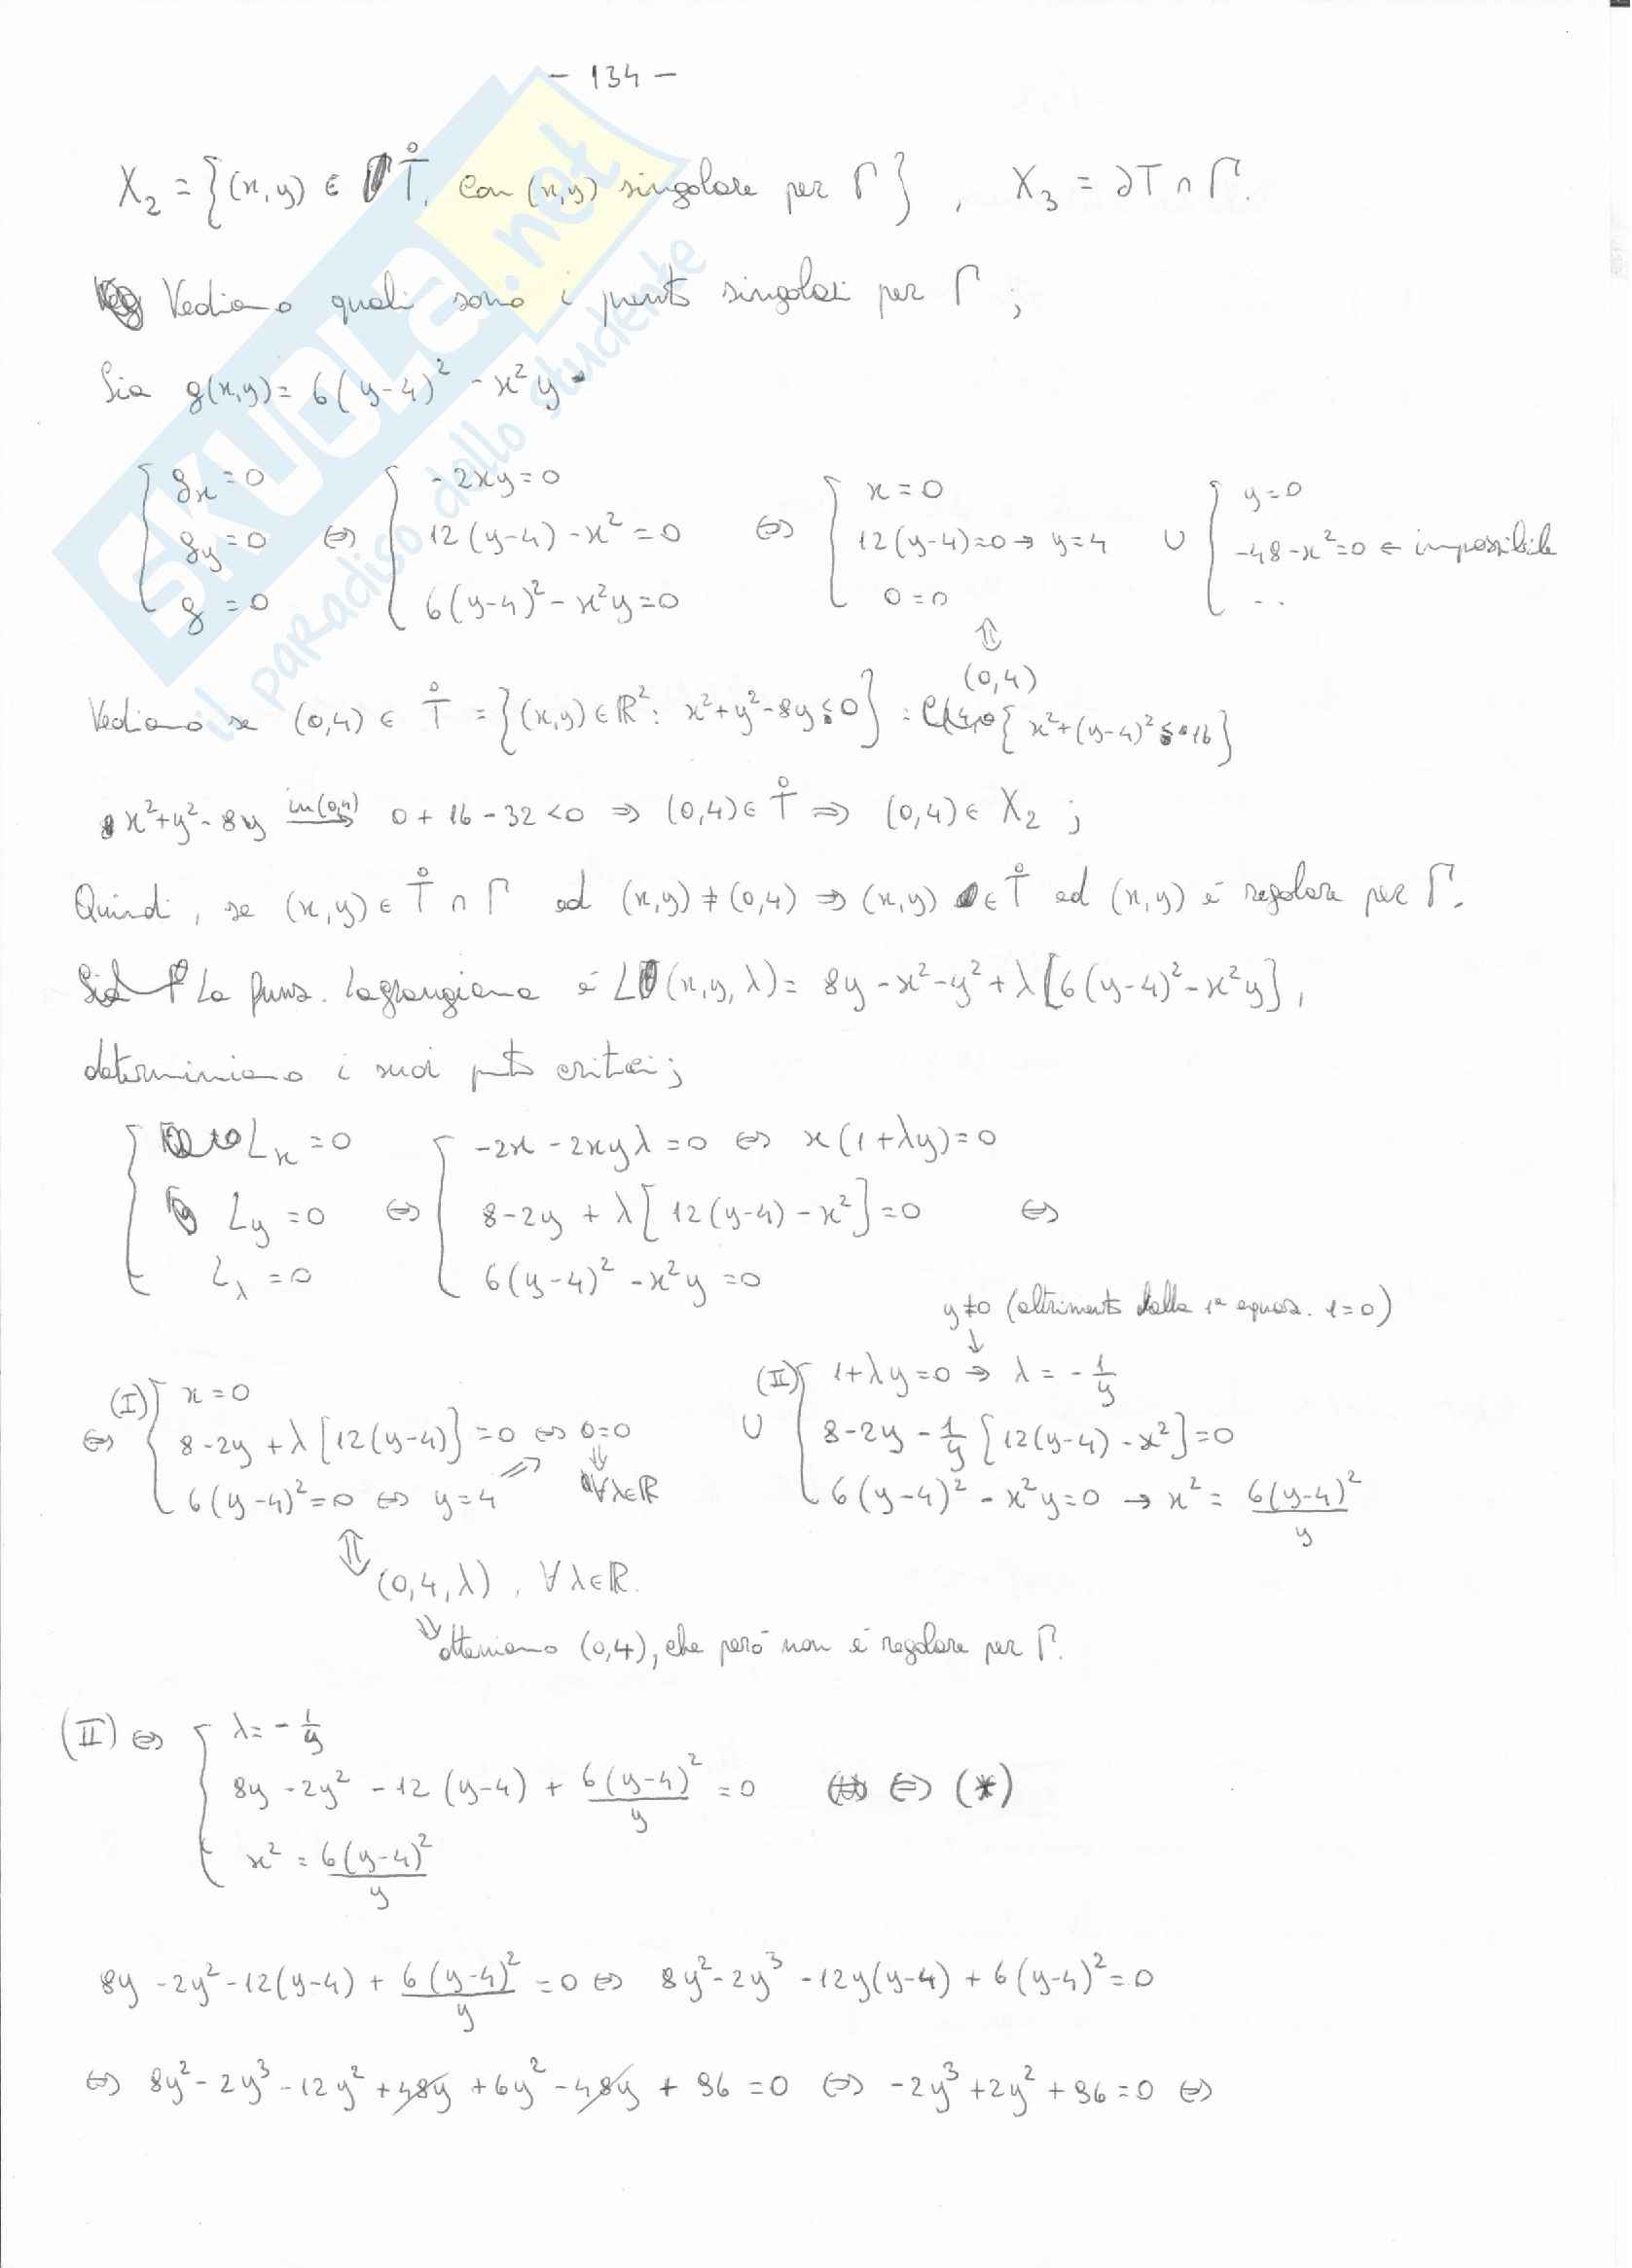 - 134 -
X₂ = {(x,y) ∈ T̊, con (x,y) singolare per Γ} , X₃ = ∂T ∩ Γ.
Vediamo quali sono i punti singolari per Γ ;
Sia g(x,y) = 6(y-4)² - x²y
{ gx = 0 ; gy = 0 ; g = 0 ⇔ { -2xy = 0 ; 12(y-4) - x² = 0 ; 6(y-4)² - x²y = 0 ⇔ { x = 0 ; 12(y-4) = 0 → y = 4 ; 0 = 0 ∪ { y = 0 ; -48 - x² = 0 ← impossibile ; ...
⇕
(0,4)
Vediamo se (0,4) ∈ T̊ = {(x,y) ∈ ℝ² : x² + y² - 8y ≤ 0} = { x² + (y-4)² ≤ 16}
x² + y² - 8y in (0,4) → 0 + 16 - 32 < 0 ⇒ (0,4) ∈ T̊ ⇒ (0,4) ∈ X₂ ;
Quindi, se (x,y) ∈ T̊ ∩ Γ ed (x,y) ≠ (0,4) ⇒ (x,y) ∈ T̊ ed (x,y) é regolare per Γ.
La funz. Lagrangiana é L(x,y,λ) = 8y - x² - y² + λ[6(y-4)² - x²y],
determiniamo i suoi pnti critici;
{ Lx = 0 ; Ly = 0 ; Lλ = 0 ⇔ { -2x - 2xyλ = 0 ⇔ x(1+λy) = 0 ; 8 - 2y + λ[12(y-4) - x²] = 0 ; 6(y-4)² - x²y = 0 ⇔
y ≠ 0 (altrimenti dalla 1ª equaz. 1 = 0)
↓
⇔ (I) { x = 0 ; 8 - 2y + λ[12(y-4)] = 0 ⇔ 0 = 0 ⇓ ∀λ∈ℝ ; 6(y-4)² = 0 ⇔ y = 4 ∪ (II) { 1 + λy = 0 → λ = -1/y ; 8 - 2y - 1/y [12(y-4) - x²] = 0 ; 6(y-4)² - x²y = 0 → x² = 6(y-4)²/y
⇕ (0,4,λ) , ∀λ∈ℝ.
⇓ otteniamo (0,4), che peró non é regolare per Γ.
(II) ⇔ { λ = -1/y ; 8y - 2y² - 12(y-4) + 6(y-4)²/y = 0 ; x² = 6(y-4)²/y ⇔ (*)
8y - 2y² - 12(y-4) + 6(y-4)²/y = 0 ⇔ 8y² - 2y³ - 12y(y-4) + 6(y-4)² = 0
⇔ 8y² - 2y³ - 12y² + 48y + 6y² - 48y + 96 = 0 ⇔ -2y³ + 2y² + 96 = 0 ⇔
SKUOLA.net
il paradiso dello studente